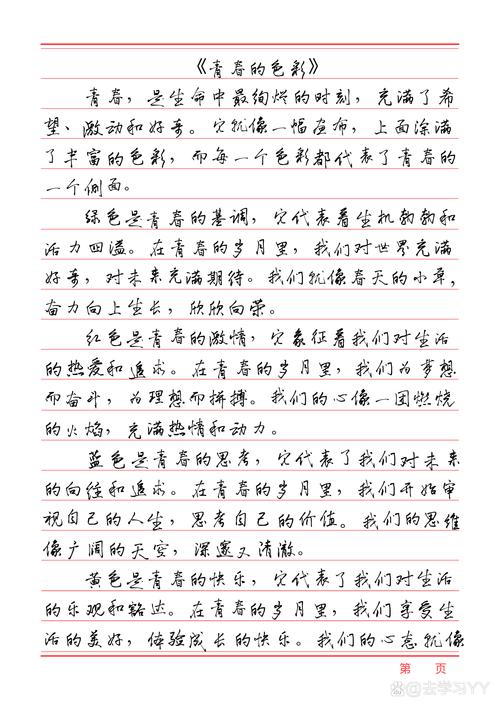 《青春的色彩》
青春，是生命中最绚烂的时刻，充满了希
望、激动和好奇。它就像一幅画布，上面涂满
了丰富的色彩，而每一个色彩都代表了青春的
一个侧面。
绿色是青春的基调，它代表着生机勃勃和
活力四溢。在青春的岁月里，我们对世界充满
好奇，对未来充满期待。我们就像春天的小草，
奋力向上生长，欣欣向荣。
红色是青春的激情，它象征着我们对生活
的热爱和追求。在青春的岁月里，我们为梦想
而奋斗，为理想而拼搏。我们的心像一团燃烧
的火焰，充满热情和动力。
蓝色是青春的思考，它代表了我们对未来
的向往和追求。在青春的岁月里，我们开始审
视自己的人生，思考自己的价值。我们的思维
像广阔的天空，深邃又清澈。
黄色是青春的快乐，它代表了我们对生活
的乐观和豁达。在青春的岁月里，我们享受生
活的美好，体验成长的快乐。我们的心态就像
第 页
@去学习YY